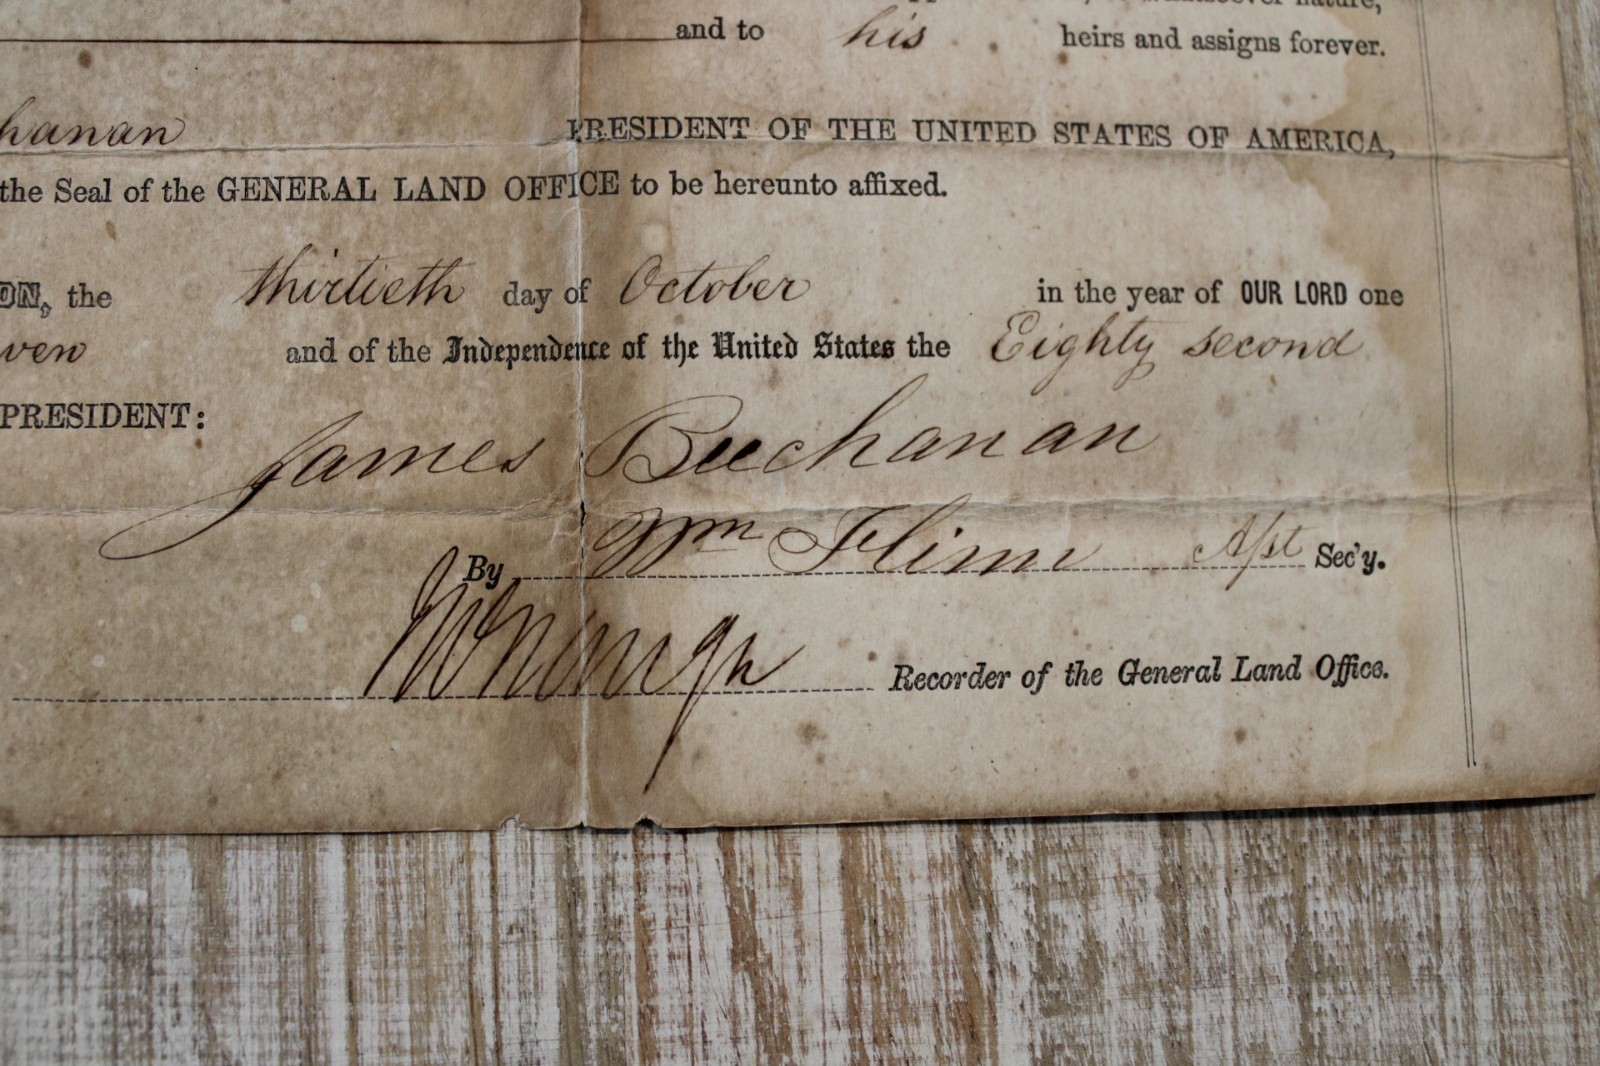 nature,
and to his heirs and assigns forever.
hanan PRESIDENT OF THE UNITED STATES OF AMERICA,
the Seal of the GENERAL LAND OFFICE to be hereunto affixed.
ON, the thirtieth day of October in the year of OUR LORD one
ven and of the Independence of the United States the Eighty second
PRESIDENT:
James Buchanan
By Wm Flinn Asst Sec'y.
Recorder of the General Land Office.